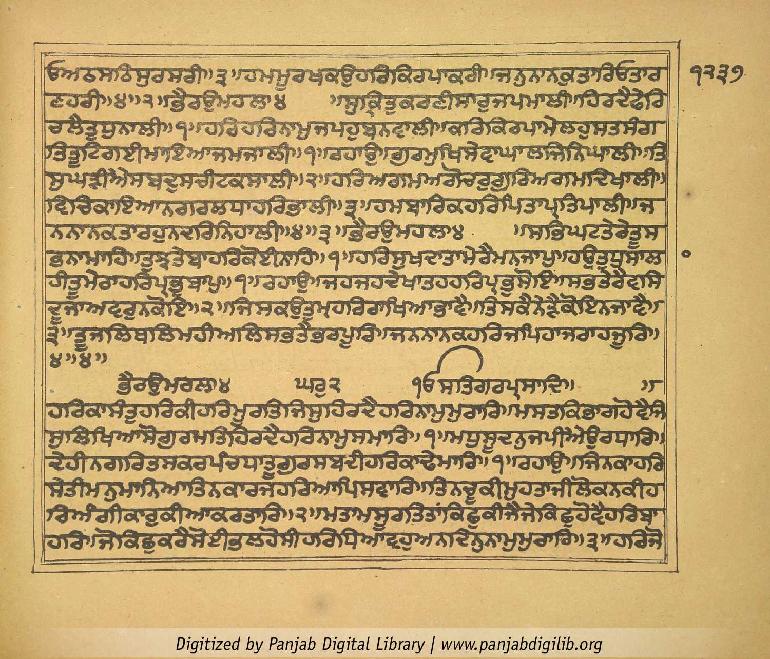 ਓਅਠਸਠਿਸੁਰਸਰੀ॥੩॥ਹਮਮੂਰਖਕਉਹਰਿਕਿਰਪਾਕਰੀ॥ਜਨੁਨਾਨਕੁਤਾਰਿਓਤਾਰ
ਣਹਰੀ॥੪॥੨॥ਭੈਰਉਮਹਲਾ੪ ॥ਸੁਕ੍ਰਿਤੁਕਰਣੀਸਾਰੁਜਪਮਾਲੀ॥ਹਿਰਦੈਫੇਰਿ
ਚਲੈਤੁਧੁਨਾਲੀ॥੧॥ਹਰਿਹਰਿਨਾਮੁਜਪਹੁਬਨਵਾਲੀ॥ਕਰਿਕਿਰਪਾਮੇਲਹੁਸਤਸੰਗ
ਤਿਤੂਟਿਗਈਮਾਇਆਜਮਜਾਲੀ॥੧॥ਰਹਾਉ॥ਗੁਰਮੁਖਿਸੇਵਾਘਾਲਜਿਨਿਘਾਲੀ॥ਤਿ
ਸੁਘੜੀਐਸਬਦੁਸਚੀਟਕਸਾਲੀ॥੨॥ਹਰਿਅਗਮਅਗੋਚਰੁਗੁਰਿਅਗਮਦਿਖਾਲੀ॥
ਵਿਚਿਕਾਇਆਨਗਰਲਧਾਹਰਿਭਾਲੀ॥੩॥ਹਮਬਾਰਿਕਹਰਿਪਿਤਾਪ੍ਰਤਿਪਾਲੀ॥ਜ
ਨਨਾਨਕਤਾਰਹੁਨਦਰਿਨਿਹਾਲੀ॥੪॥੩॥ਭੈਰਉਮਹਲਾ੪ ॥ਸਭਿਘਟਤੇਰੇਤੂਸ
ਭਨਾਮਾਹਿ॥ਤੁਝਤੇਬਾਹਰਿਕੋਈਨਾਹਿ॥੧॥ਹਰਿਸੁਖਦਾਤਾਮੇਰੈਮਨਜਾਪੁ॥ਹਉਤੁਧੁਸਾਲ
ਹੀਤੂਮੇਰਾਹਰਿਪ੍ਰਭੁਬਾਪੁ॥੧॥ਰਹਾਉ॥ਜਹਜਹਦੇਖਾਤਹਹਰਿਪ੍ਰਭੁਸੋਇ॥ਸਭਤੇਰੈਵਸਿ
ਦੂਜਾਅਵਰੁਨਕੋਇ॥੨॥ਜਿਸਕਉਤੁਮਹਰਿਰਾਖਿਆਭਾਵੈ॥ਤਿਸਕੈਨੇੜੈਕੋਇਨਜਾਵੈ॥
੩॥ਤੂਜਲਿਥਲਿਮਹੀਅਲਿਸਭਤੈਭਰਪੂਰਿ॥ਜਨਨਾਨਕਹਰਿਜਪਿਹਾਜਰਾਹਜੂਰਿ॥
੪॥੪॥
ਭੈਰਉਮਹਲਾ੪ ਘਰੁ੨ ੧ਓੁਸਤਿਗੁਰਪ੍ਰਸਾਦਿ॥ ॥
ਹਰਿਕਾਸੰਤੁਹਰਿਕੀਹਰਿਮੂਰਤਿਜਿਸੁਹਿਰਦੈਹਰਿਨਾਮੁਮੁਰਾਰਿ॥ਮਸਤਕਿਭਾਗੁਹੋਵੈਜਿ
ਸੁਲਿਖਿਆਸੋਗੁਰਮਤਿਹਿਰਦੈਹਰਿਨਾਮੁਸਮਾਰਿ॥੧॥ਮਧੁਸੂਦਨੁਜਪੀਐਉਰਧਾਰਿ॥
ਦੇਹੀਨਗਰਿਤਸਕਰਪੰਚਧਾਤੂਗੁਰਸਬਦੀਹਰਿਕਾਢੇਮਾਰਿ॥੧॥ਰਹਾਉ॥ਜਿਨਕਾਹਰਿ
ਸੇਤੀਮਨੁਮਾਨਿਆਤਿਨਕਾਰਜਹਰਿਆਪਿਸਵਾਰਿ॥ਤਿਨਚੂਕੀਮੁਹਤਾਜੀਲੋਕਨਕੀਹ
ਰਿਅੰਗੀਕਾਰੁਕੀਆਕਰਤਾਰਿ॥੨॥ਮਤਾਮਸੂਰਤਿਤਾਂਕਿਛੁਕੀਜੈਜੇਕਿਛੁਹੋਵੈਹਰਿਬਾ
ਹਰਿ॥ਜੋਕਿਛੁਕਰੇਸੋਈਭਲਹੋਸੀਹਰਿਧਿਆਵਹੁਅਨਦਿਨੁਨਾਮੁਮੁਰਾਰਿ॥੩॥ਹਰਿਜੋ
੧੨੩੭
Digitized by Panjab Digital Library | www.panjabdigilib.org